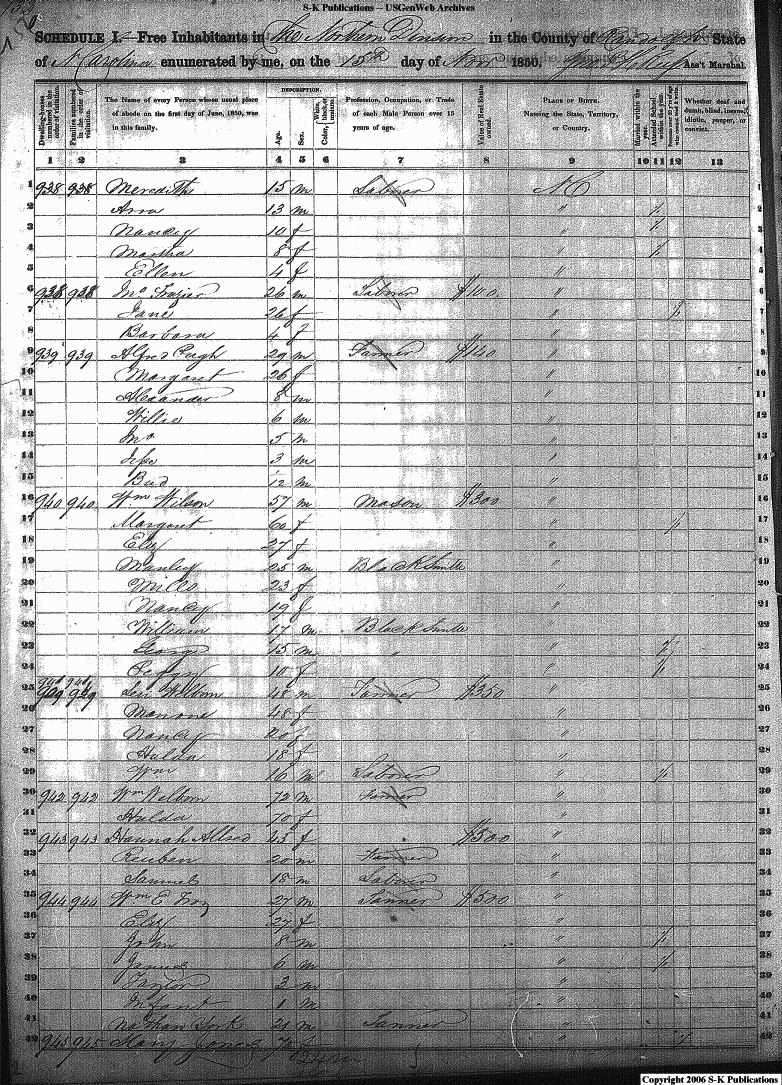 S-K Publications -- USGenWeb Archives
SCHEDULE I.— Free Inhabitants in The Northern Division in the County of Randolph State
of N Carolina enumerated by me, on the 15th day of Nov 1850. Ass't Marshal.
Dwelling-houses numbered in the order of visitation.
Families numbered in the order of visitation.
The Name of every Person whose usual place of abode on the first day of June, 1850, was in this family.
DESCRIPTION.
Age.
Sex.
Color, White, black, or mulatto.
Profession, Occupation, or Trade of each Male Person over 15 years of age.
Value of Real Estate owned.
PLACE OF BIRTH. Naming the State, Territory, or Country.
Married within the year.
Attended School within the year.
Whether deaf and dumb, blind, insane, idiotic, pauper, or convict.
1 2 3 4 5 6 7 8 9 10 11 12 13
1 938 938 Meredith 15 m Laborer N C 1
2 13 m " / 2
3 Nancy 10 f " / 3
4 Martha 8 f " / 4
5 Ellen 4 f " 5
6 938 938 Jno Frazier 26 m Laborer $100 " 6
7 Jane 26 f " / 7
8 Barbara 4 f " 8
9 939 939 Alfred Pugh 29 m Farmer $140 " 9
10 Margaret 26 f " 10
11 Alexander 8 m " 11
12 Willie 6 m " 12
13 Jno 5 m " 13
14 Jesse 3 m " 14
15 Bud 12 m " 15
16 940 940 Wm Wilson 57 m Mason $300 " 16
17 Margaret 60 f " / 17
18 Eliz 27 f " 18
19 Manley 25 m Black Smith " 19
20 23 f " 20
21 Nancy 19 f " 21
22 William 17 m Black Smith " 22
23 George 15 m " " / 23
24 10 f " / 24
25 941 941 Levi Welborn 48 m Farmer $350 " 25
26 48 f " 26
27 Nancy 20 f " 27
28 Hulda 18 f " 28
29 Wm 16 m Laborer " / 29
30 942 942 Wm Welborn 72 m Farmer " 30
31 Hulda 70 f " 31
32 943 943 Hannah Allred 43 f $500 " 32
33 Reuben 20 m Farmer " 33
34 Samuel 18 m Laborer " 34
35 944 944 Wm E Foy 27 m Tanner $500 " 35
36 Eliz 27 f " 36
37 John 8 m " / 37
38 James 6 m " / 38
39 Taylor 2 m " 39
40 Infant 1 m " 40
41 Nathan York 21 m Tanner " 41
42 945 945 Mary Jones f " / 42
Copyright 2006 S-K Publications